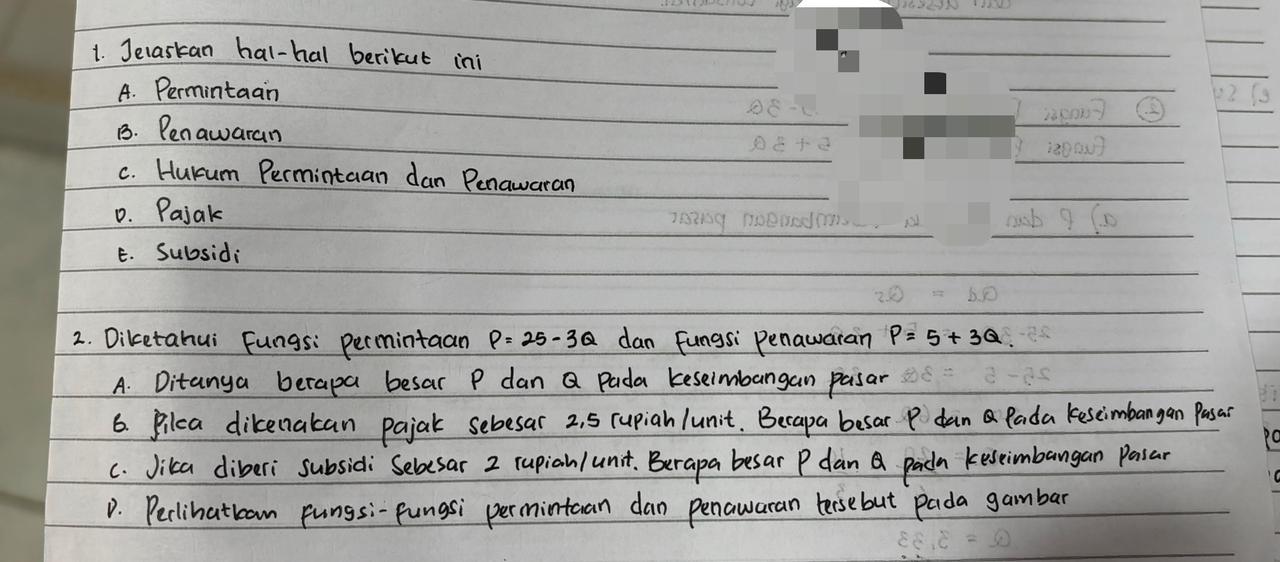 1. Jelaskan hal-hal berikut ini
A. Permintaan
B. Penawaran
C. Hukum Permintaan dan Penawaran
D. Pajak
E. Subsidi
2. Diketahui Fungsi permintaan P = 25 - 3Q dan Fungsi penawaran P = 5 + 3Q.
A. Ditanya berapa besar P dan Q pada keseimbangan pasar
B. Jika dikenakan pajak sebesar 2,5 rupiah/unit. Berapa besar P dan Q pada keseimbangan pasar
C. Jika diberi subsidi sebesar 2 rupiah/unit. Berapa besar P dan Q pada keseimbangan pasar
D. Perlihatkan fungsi-fungsi permintaan dan penawaran tersebut pada gambar